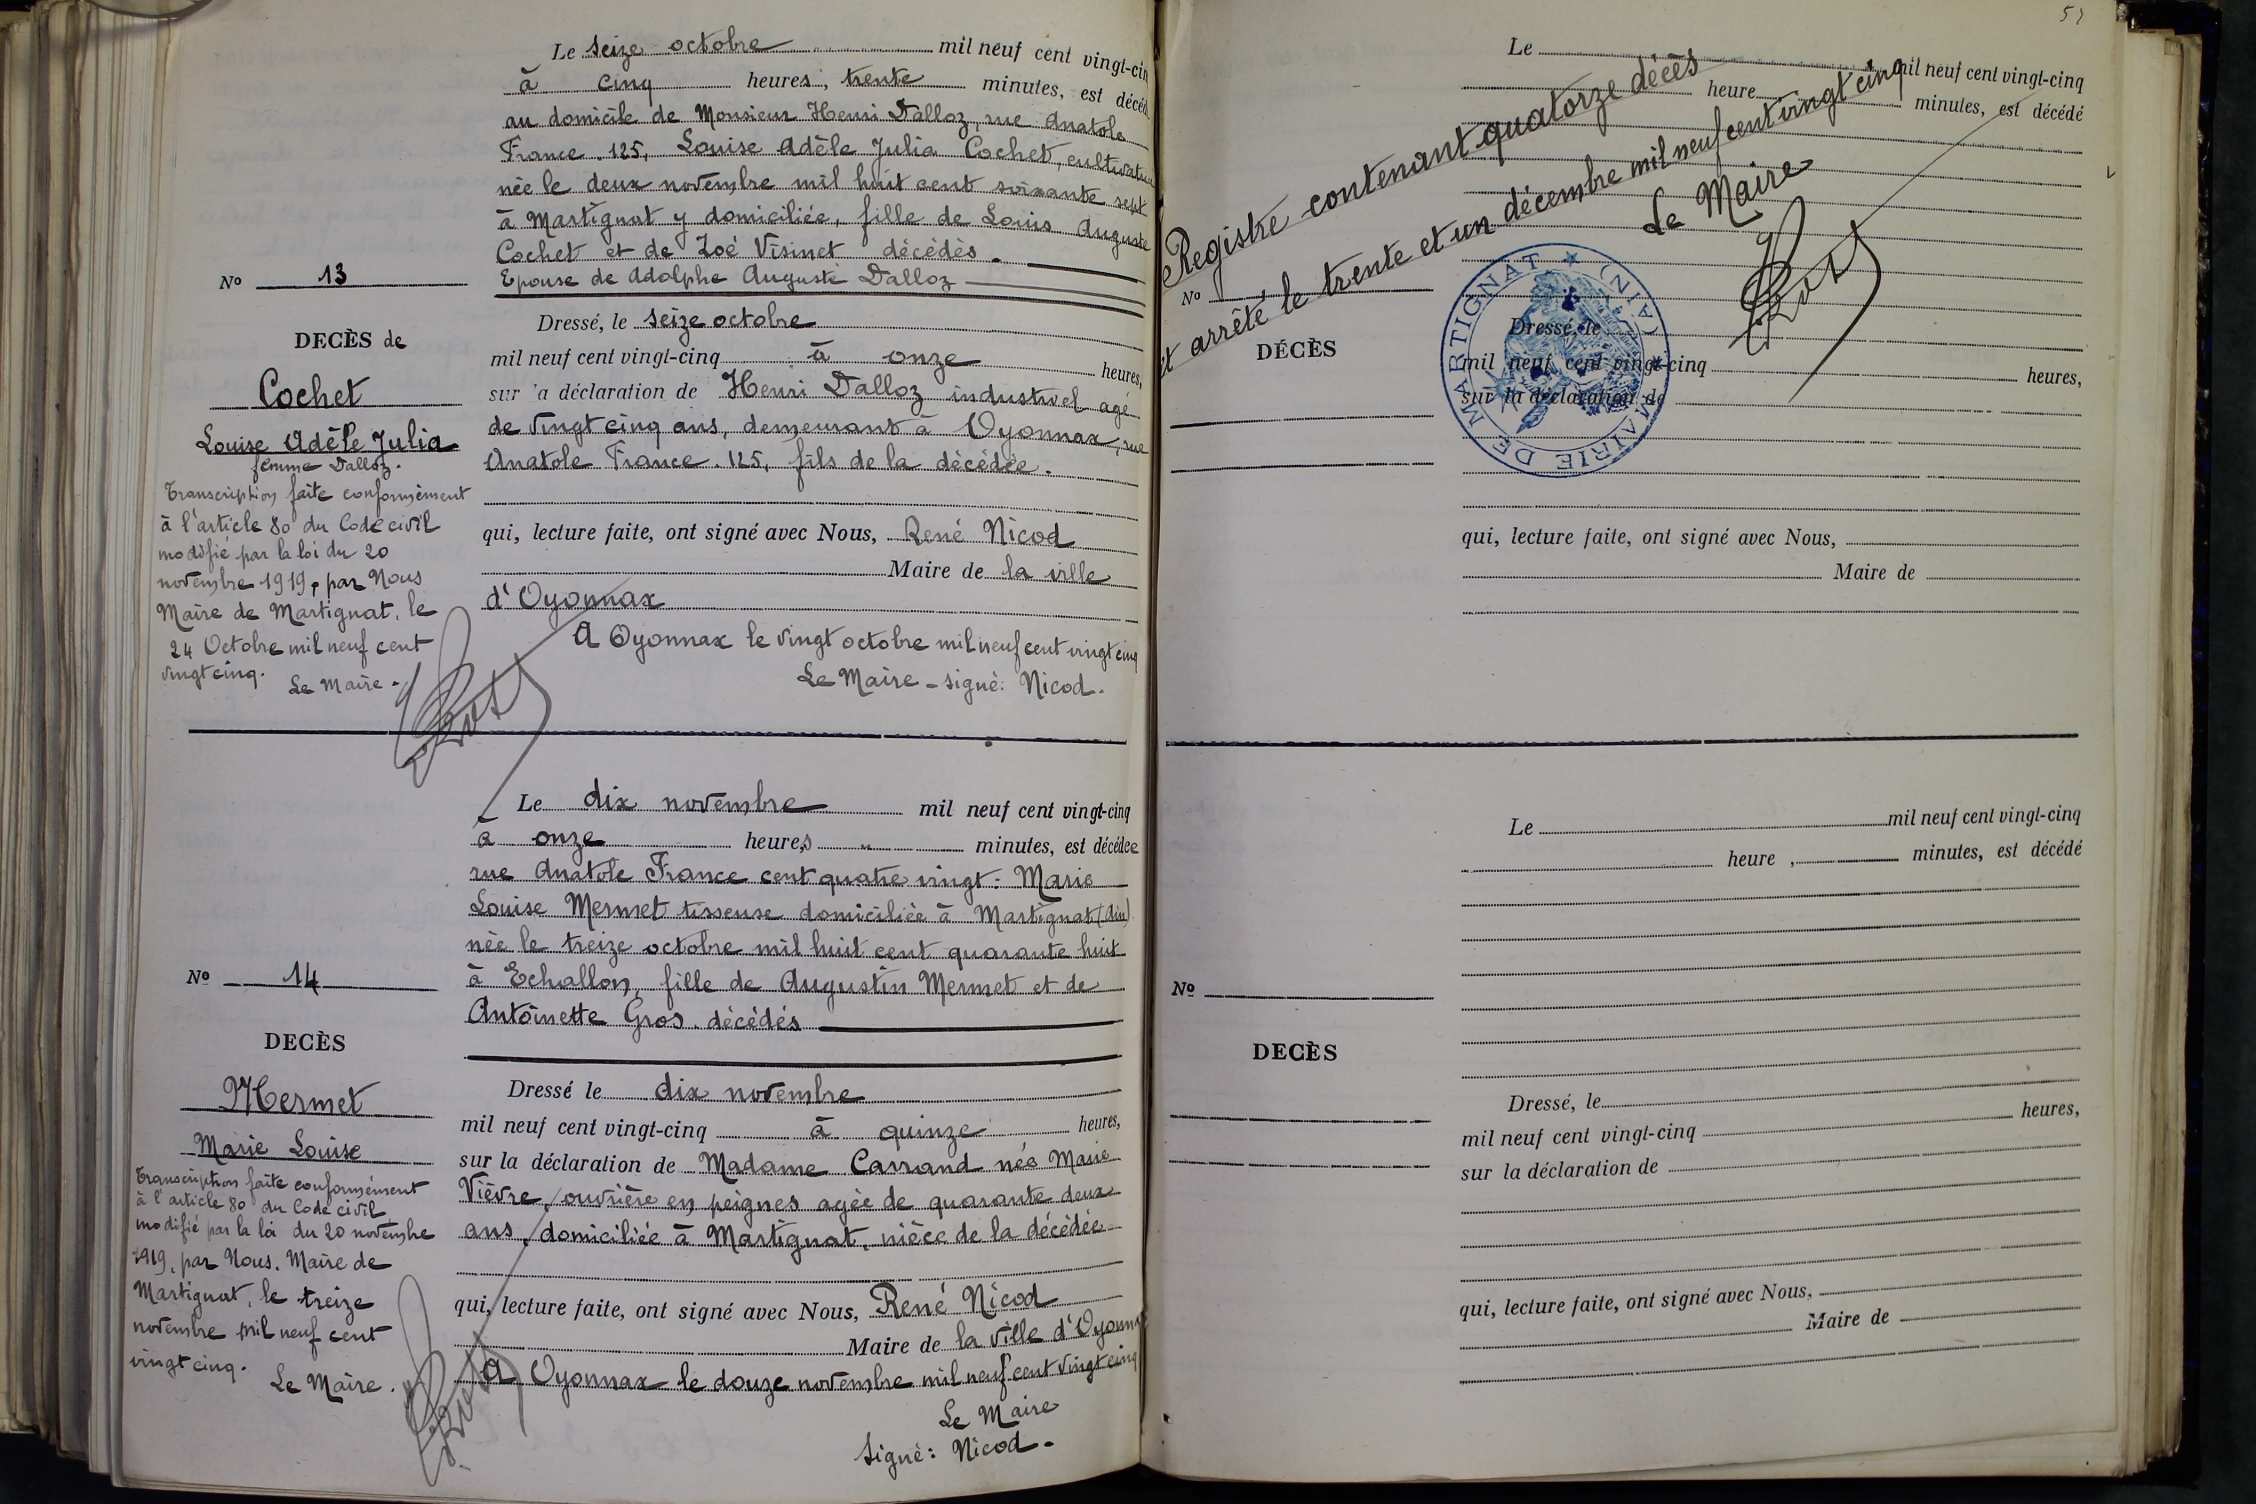 Le seize octobre mil neuf cent vingt-cin
à cinq heures, trente minutes, est décéd
au domicile de Monsieur Henri Dalloz, rue Anatole
France. 125, Louise Adèle Julia Cochet,
née le deux novembre mil huit cent soixante sept
à Martignat y domiciliée, fille de Louis Auguste
Cochet et de Zoé Visinet décédés.
Epouse de Adolphe Auguste Dalloz
No 13
DECÈS de
Cochet
Louise Adèle Julia
femme Dalloz.
Transcription faite conformément
à l'article 80 du Code civil
modifié par la loi du 20
novembre 1919, par Nous
Maire de Martignat, le
24 Octobre mil neuf cent
vingt cinq.
Le Maire.
Dressé, le seize octobre
mil neuf cent vingt-cinq à onze heures,
sur a déclaration de Henri Dalloz industriel agé
de vingt cinq ans, demeurant à Oyonnax, rue
Anatole France. 125, fils de la décédée.
qui, lecture faite, ont signé avec Nous, René Nicod
Maire de la ville
d'Oyonnax
A Oyonnax le vingt octobre mil neuf cent vingt cinq
Le Maire - signé: Nicod.
Le dix novembre mil neuf cent vingt-cinq
à onze heures " minutes, est décédée
rue Anatole France cent quatre vingt. Marie
Louise Mermet tisseuse domiciliée à Martignat (Ain)
née le treize octobre mil huit cent quarante huit
à Echallon, fille de Augustin Mermet et de
Antoinette Gros. décédés
No 14
DECÈS
Mermet
Marie Louise
Transcription faite conformément
à l'article 80 du Code civil
modifié par la loi du 20 novembre
1919, par Nous. Maire de
Martignat, le treize
novembre mil neuf cent
vingt cinq.
Le Maire.
Dressé le dix novembre
mil neuf cent vingt-cinq à quinze heures,
sur la déclaration de Madame Carrand née Marie
Vièvre, ouvrière en peignes agée de quarante deux
ans, domiciliée à Martignat, nièce de la décédée
qui, lecture faite, ont signé avec Nous, René Nicod
Maire de la ville d'Oyonnax
A Oyonnax le douze novembre mil neuf cent vingt cinq
Le Maire
Signé: Nicod.
Le mil neuf cent vingt-cinq
heure minutes, est décédé
Registre contenant quatorze décès
et arrêté le trente et un décembre mil neuf cent vingt cinq
Le Maire
MAIRIE DE MARTIGNAT ★ (AIN) ★
No
DÉCÈS
Dressé, le
mil neuf cent vingt-cinq heures,
sur la déclaration de
qui, lecture faite, ont signé avec Nous,
Maire de
Le mil neuf cent vingt-cinq
heure , minutes, est décédé
No
DECÈS
Dressé, le
mil neuf cent vingt-cinq heures,
sur la déclaration de
qui, lecture faite, ont signé avec Nous,
Maire de